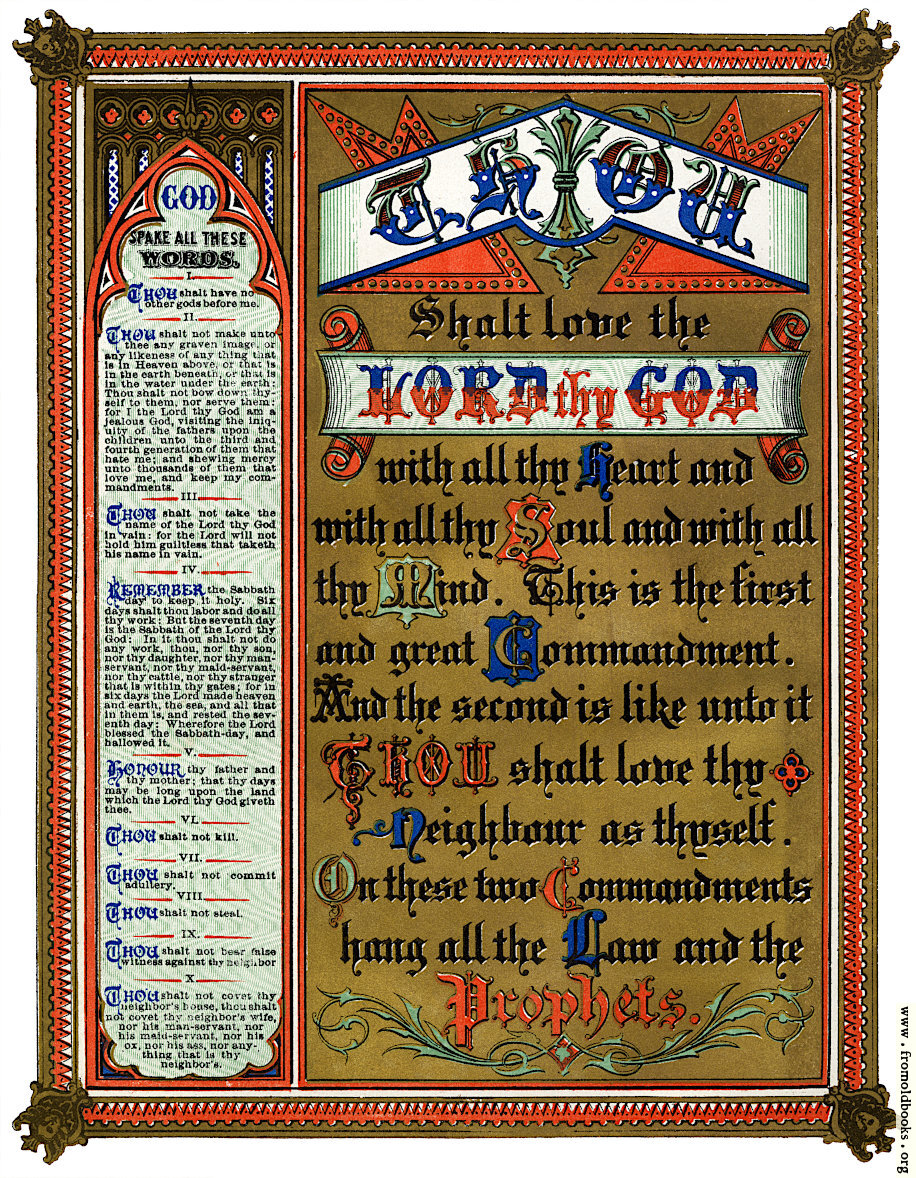 GOD
SPAKE ALL THESE
WORDS.
I.
THOU shalt have no
other gods before me.
II.
THOU shalt not make unto
thee any graven image, or
any likeness of any thing that
is in Heaven above, or that is
in the earth beneath, or that is
in the water under the earth:
Thou shalt not bow down thy-
self to them, nor serve them:
for I the Lord thy God am a
jealous God, visiting the iniq-
uity of the fathers upon the
children unto the third and
fourth generation of them that
hate me; and shewing mercy
unto thousands of them that
love me, and keep my com-
mandments.
III
THOU shalt not take the
name of the Lord thy God
in vain: for the Lord will not
hold him guiltless that taketh
his name in vain.
IV.
REMEMBER the Sabbath
day to keep it holy. Six
days shalt thou labor and do all
thy work: But the seventh day
is the Sabbath of the Lord thy
God: In it thou shalt not do
any work, thou, nor thy son,
nor thy daughter, nor thy man-
servant, nor thy maid-servant,
nor thy cattle, nor thy stranger
that is within thy gates; for in
six days the Lord made heaven
and earth, the sea, and all that
in them is, and rested the sev-
enth day: Wherefore the Lord
blessed the Sabbath-day, and
hallowed it.
V.
HONOUR thy father and
thy mother; that thy days
may be long upon the land
which the Lord thy God giveth
thee.
VI.
THOU shalt not kill.
VII.
THOU shalt not commit
adultery.
VIII
THOU shalt not steal.
IX.
THOU shalt not bear false
witness against thy neighbor
X
THOU shalt not covet thy
neighbor's house, thou shalt
not covet thy neighbor's wife,
nor his man-servant, nor
his maid-servant, nor his
ox, nor his ass, nor any-
thing that is thy
neighbor's.
THOU
Shalt love the
LORD thy GOD
with all thy Heart and
with all thy Soul and with all
thy Mind. This is the first
and great Commandment.
And the second is like unto it
THOU shalt love thy
Neighbour as thyself.
On these two Commandments
hang all the Law and the
Prophets.
www.fromoldbooks.org